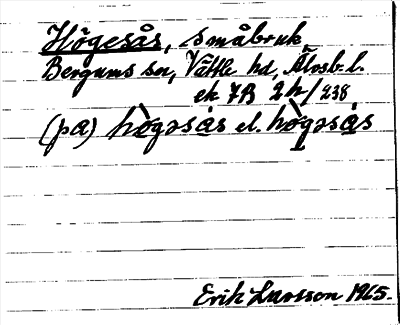 Högesås, småbruk
Bergums sn, Vättle hd, Älvsb. l.
ek 7B 2h/238
(pa) hò̀gəsås el. hò̀gəsås
Erik Larsson 1965.